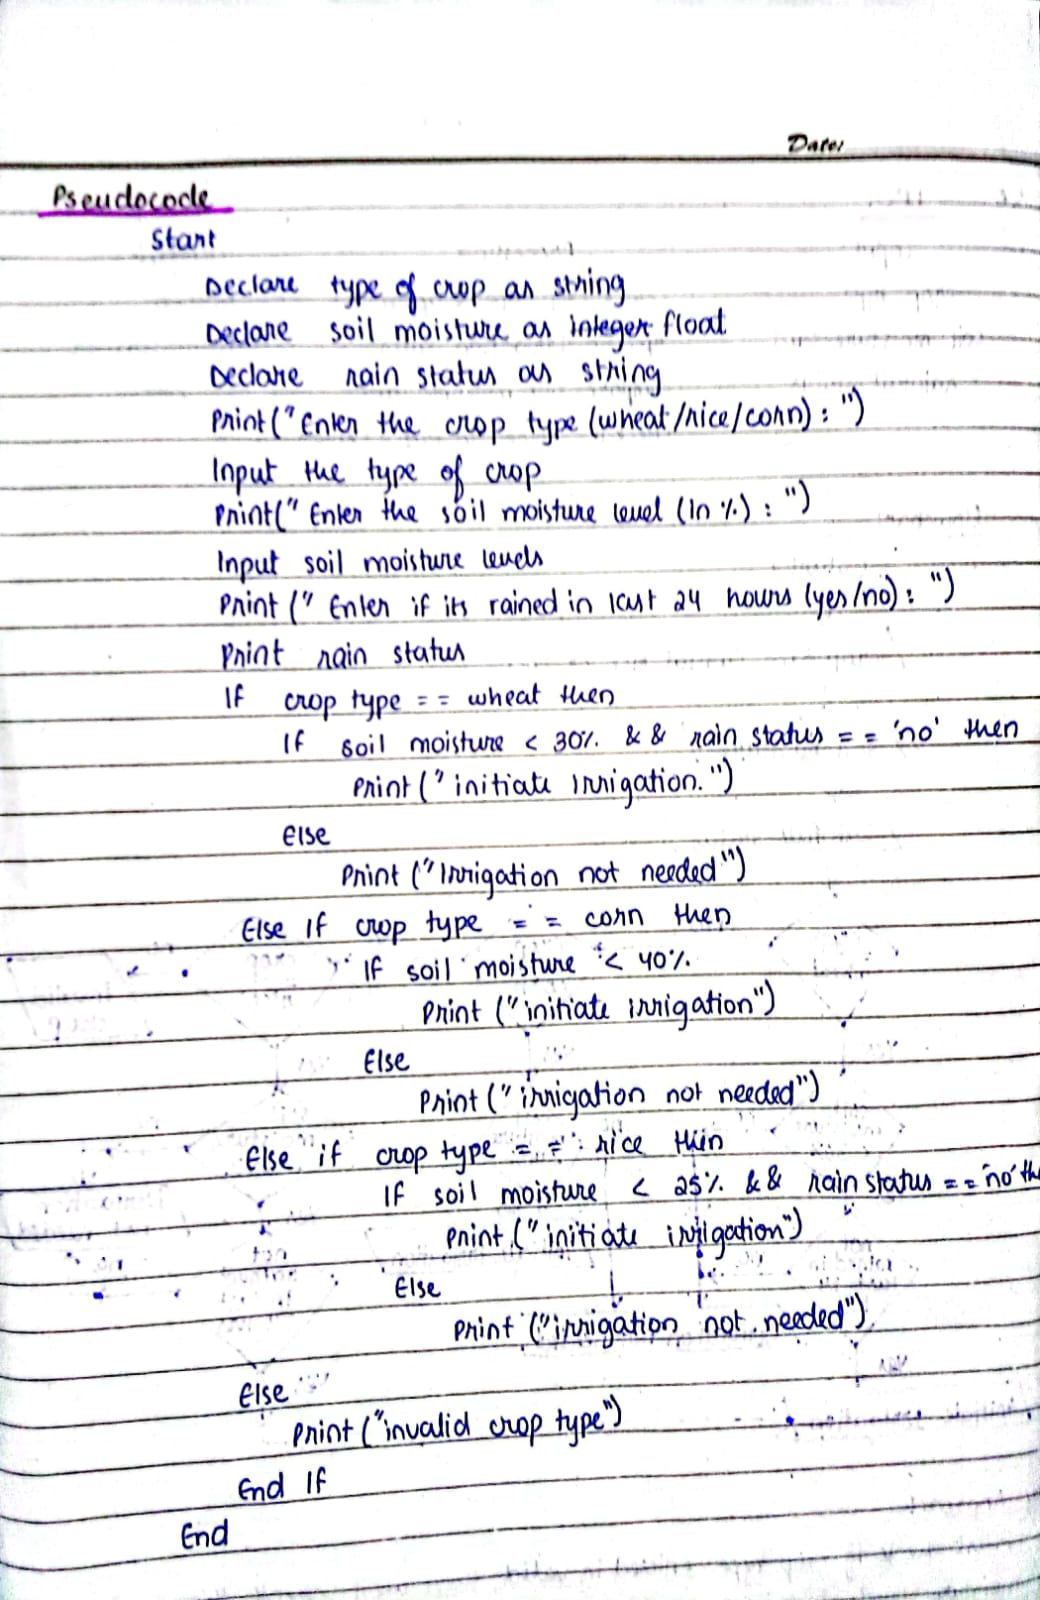 Date:
Pseudocode
Start
Declare type of crop as string
Declare soil moisture as integer float
Declare rain status as string
Print("Enter the crop type (wheat/rice/corn) : ")
Input the type of crop
Print(" Enter the soil moisture level (In %) : ")
Input soil moisture levels
Print (" Enter if its rained in last 24 hours (yes/no) : ")
Print rain status
If crop type == wheat then
If soil moisture < 30% && rain status == 'no' then
Print (" initiate irrigation. ")
Else
Print (" Irrigation not needed ")
Else If crop type == corn then
If soil moisture < 40%
Print (" initiate irrigation")
Else
Print (" irrigation not needed")
Else if crop type == rice then
If soil moisture < 25% && rain status == 'no'
Print (" initiate irrigation")
Else
Print ("irrigation not needed")
Else
Print ("invalid crop type")
End If
End